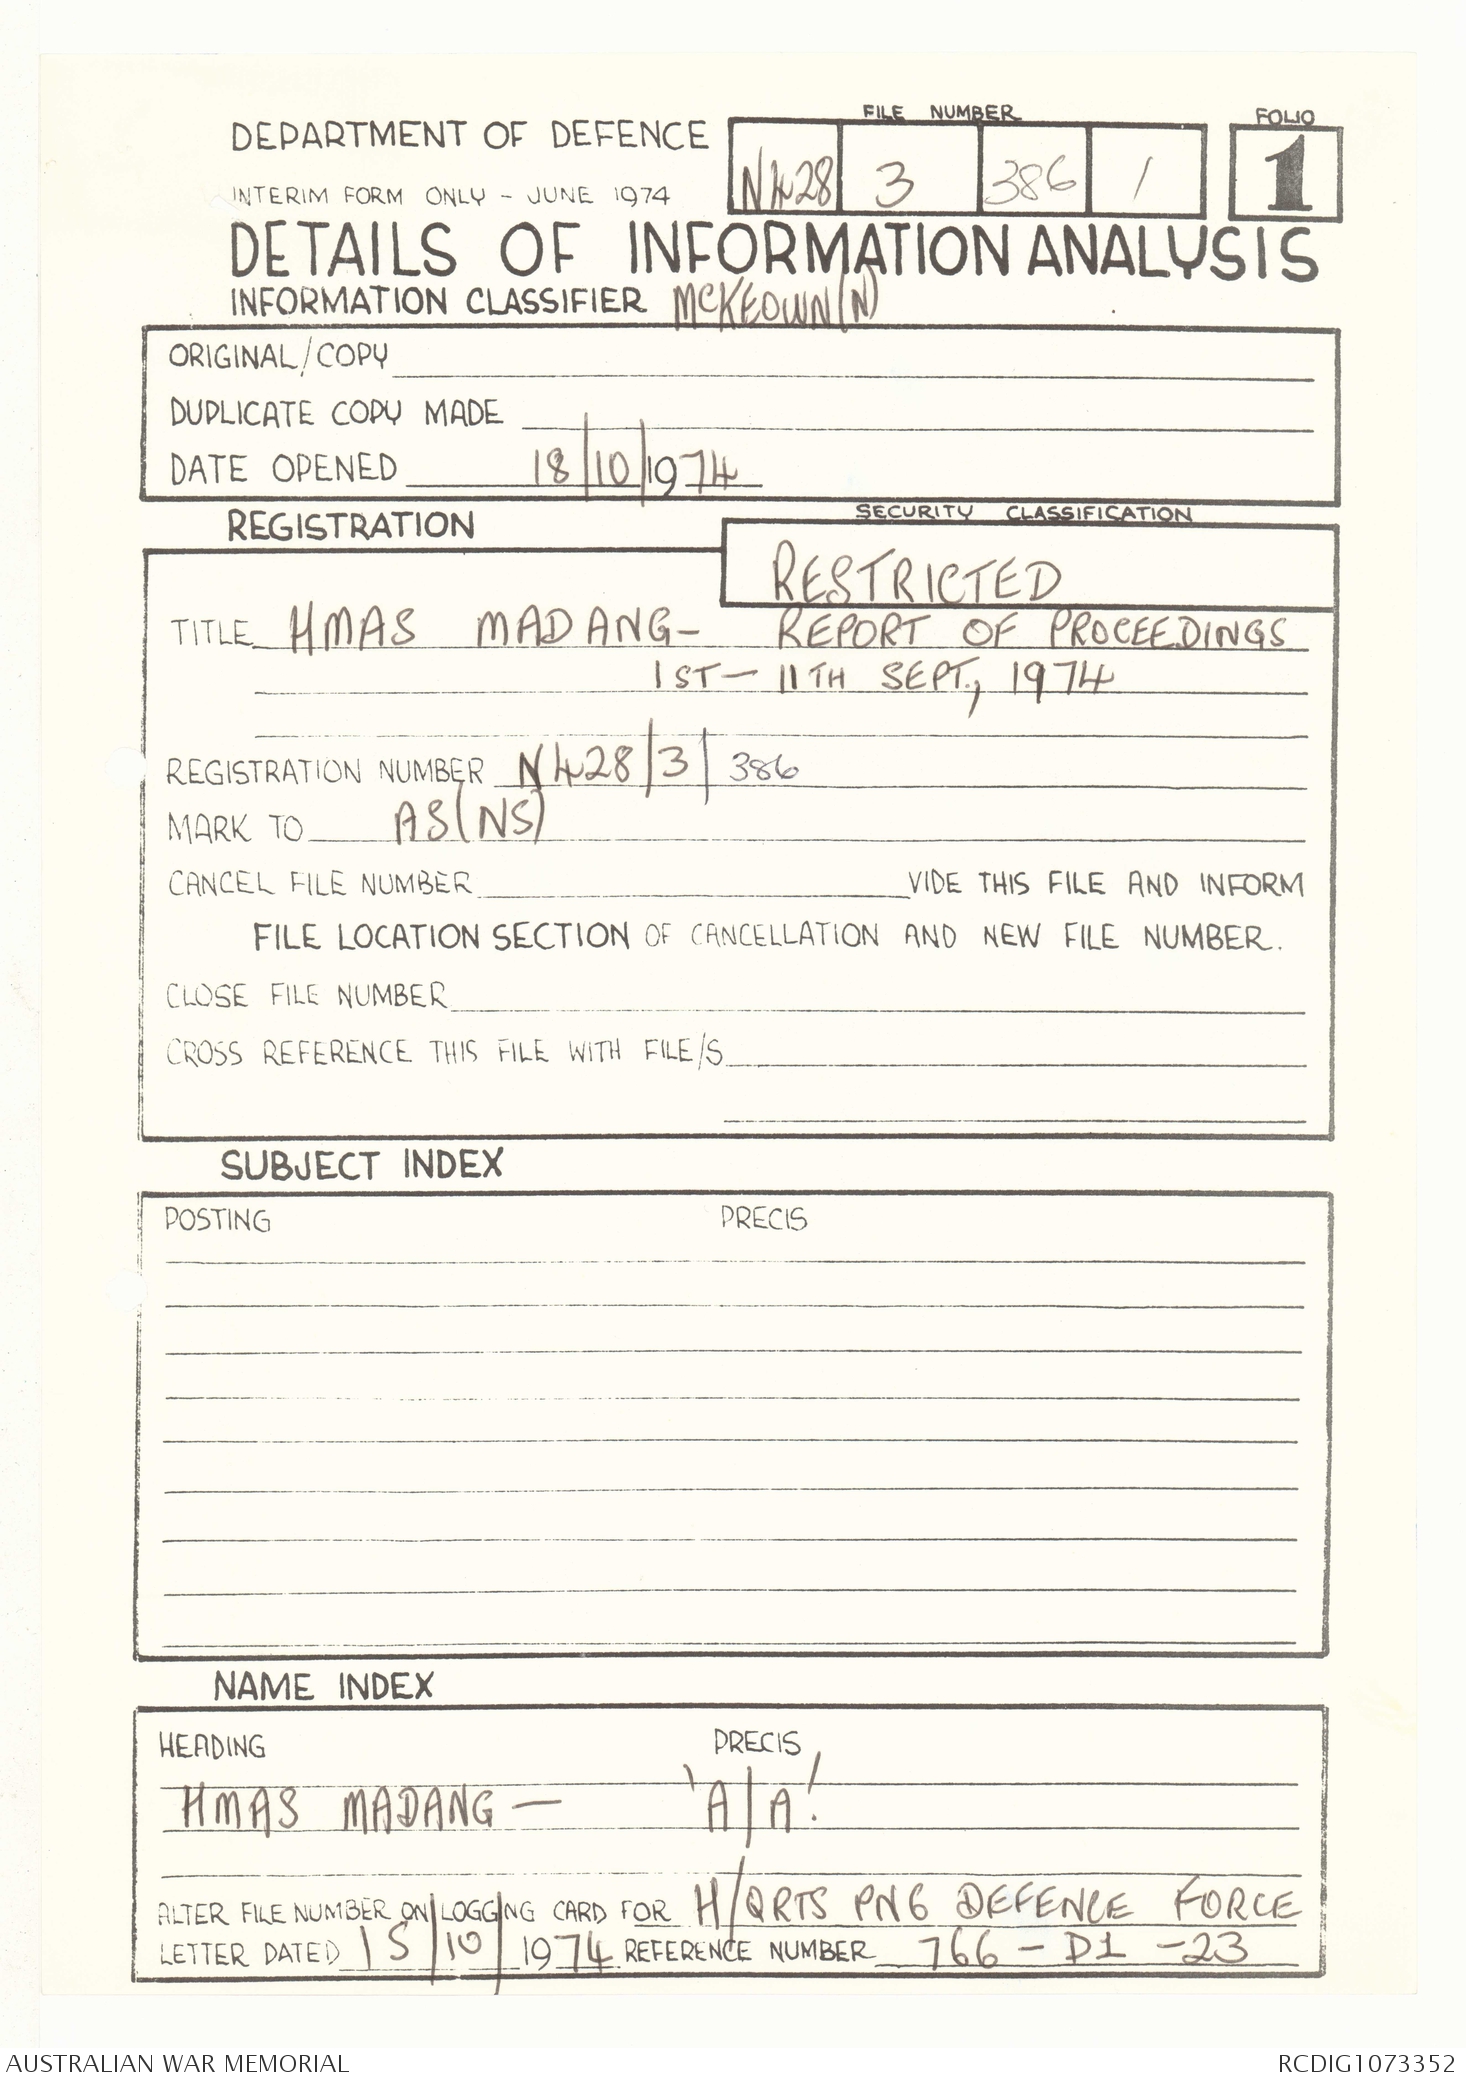 FILE NUMBER FOLIO
DEPARTMENT OF DEFENCE N428 3 386 1 1
INTERIM FORM ONLY - JUNE 1974
DETAILS OF INFORMATION ANALYSIS
INFORMATION CLASSIFIER MCKEOWN(N)
ORIGINAL/COPY
DUPLICATE COPY MADE
DATE OPENED 18/10/1974
SECURITY CLASSIFICATION
REGISTRATION
RESTRICTED
TITLE HMAS MADANG- REPORT OF PROCEEDINGS
1ST - 11TH SEPT., 1974
REGISTRATION NUMBER N428/3/386
MARK TO AS(NS)
CANCEL FILE NUMBER VIDE THIS FILE AND INFORM
FILE LOCATION SECTION OF CANCELLATION AND NEW FILE NUMBER.
CLOSE FILE NUMBER
CROSS REFERENCE THIS FILE WITH FILE/S
SUBJECT INDEX
POSTING PRECIS
NAME INDEX
HEADING PRECIS
HMAS MADANG - 'A/A'.
ALTER FILE NUMBER ON LOGGING CARD FOR H/QRTS PNG DEFENCE FORCE
LETTER DATED 15/10/1974 REFERENCE NUMBER 766-D1-23
AUSTRALIAN WAR MEMORIAL RCDIG1073352